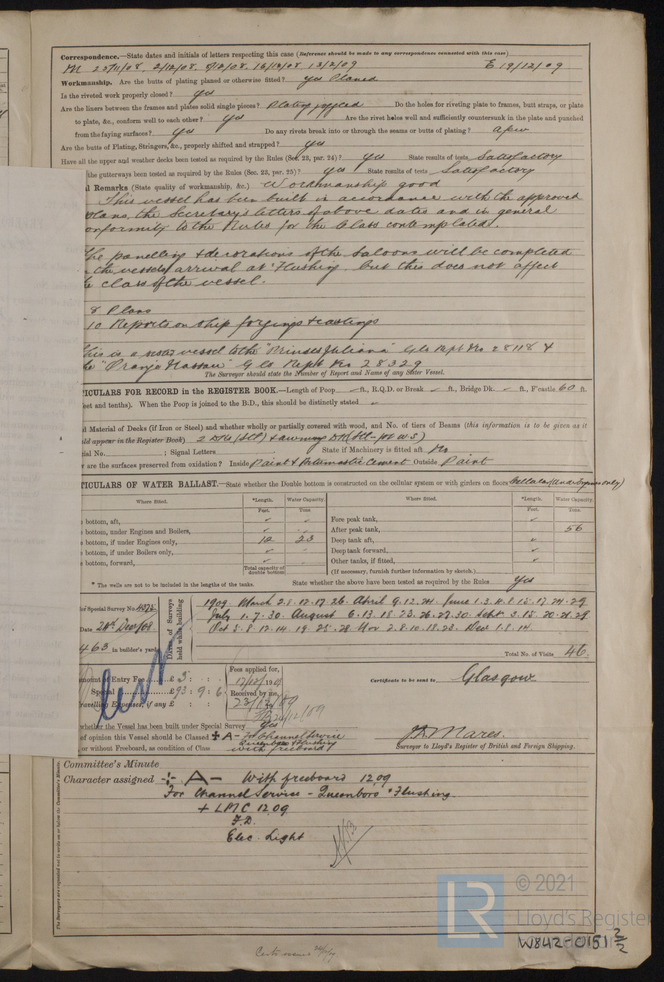 Correspondence.—State dates and initials of letters respecting this case (Reference should be made to any correspondence connected with this case)
M 25/11/08, 2/12/08, 16/12/08 13/2/09 E 19/12/09
Workmanship. Are the butts of plating planed or otherwise fitted? yes Planed
Is the riveted work properly closed? yes
Are the liners between the frames and plates solid single pieces? Plating joggled Do the holes for riveting plate to frames, butt straps, or plate
to plate, &c., conform well to each other? yes Are the rivet holes well and sufficiently countersunk in the plate and punched
from the faying surfaces? yes Do any rivets break into or through the seams or butts of plating? a few
Are the butts of Plating, Stringers, &c., properly shifted and strapped? yes
Have all the upper and weather decks been tested as required by the Rules (Sec. 23, par. 24)? yes State results of tests Satisfactory
the gutterways been tested as required by the Rules (Sec. 23, par. 25)? yes State results of tests Satisfactory
Remarks (State quality of workmanship, &c.) Workmanship good
This vessel has been built in accordance with the approved
plans, the Secretary's letters of above dates and in general
conformity to the Rules for the Class contemplated.
The panelling & decorations of the Saloons will be completed
the vessels arrival at Flushing, but this does not affect
class of the vessel.
8 Plans
10 Reports on ship forgings & castings
This is a sister vessel to the "Prinses Juliana" Gls Rept No 28118 &
"Oranje Nassau" Gls Rept No 28329
The Surveyor should state the Number of Report and Name of any Sister Vessel.
TICULARS FOR RECORD in the REGISTER BOOK.—Length of Poop ft., R.Q.D. or Break ft., Bridge Dk. ft., F'castle 60 ft.
eet and tenths). When the Poop is joined to the B.D., this should be distinctly stated
d Material of Decks (if Iron or Steel) and whether wholly or partially covered with wood, and No. of tiers of Beams (this information is to be given as it
ld appear in the Register Book) 2 Dks (Stl) & awning Dk
ial No. ; Signal Letters State if Machinery is fitted aft No
are the surfaces preserved from oxidation? Inside Paint & Bitumastic Cement Outside Paint
TICULARS OF WATER BALLAST.—State whether the Double bottom is constructed on the cellular system or with girders on floors Cellular (under engines only)
Where fitted. *Length. Water Capacity. Where fitted. *Length. Water Capacity.
Feet. Tons. Feet. Tons.
bottom, aft, Fore peak tank,
bottom, under Engines and Boilers, After peak tank, 56
bottom, if under Engines only, 12 23 Deep tank aft,
bottom, if under Boilers only, Deep tank forward,
bottom, forward, Other tanks, if fitted,
Total capacity of double bottom (If necessary, furnish further information by sketch.)
* The wells are not to be included in the lengths of the tanks. State whether the above have been tested as required by the Rules Yes
for Special Survey No.
Date 24th Dec/08
463 in builder's yard
Dates of Surveys held while building
1909 March 2.8.12.17.26 April 9.12.21 June 1.3.4.8.15.17.24.29
July 1.7.30 August 6.13.18.23.26.27.30 Sept 3.15.20.21.29
Oct 5.8.12.14.19.25.28 Nov 2.8.10.18.23 Dec 1.8.14
Total No. of Visits 46
mount Entry Fee £ 3 : :
Special £ 93 : 9 : 6
ravelling Expenses, if any £ : :
Fees applied for,
17/12/1909
Received by me,
23/12/09
Certificate to be sent to Glasgow
whether the Vessel has been built under Special Survey Yes
of opinion this Vessel should be Classed + A - For Channel Service
Queenboro & Flushing
or without Freeboard, as condition of Class with freeboard
Surveyor to Lloyd's Register of British and Foreign Shipping.
Committee's Minute
Character assigned + A - With freeboard 12.09
For Channel Service - Queenboro' & Flushing
+ LMC 12.09
F.D.
Elec. Light
© 2021
Lloyd's Register
W842-0151 2/2